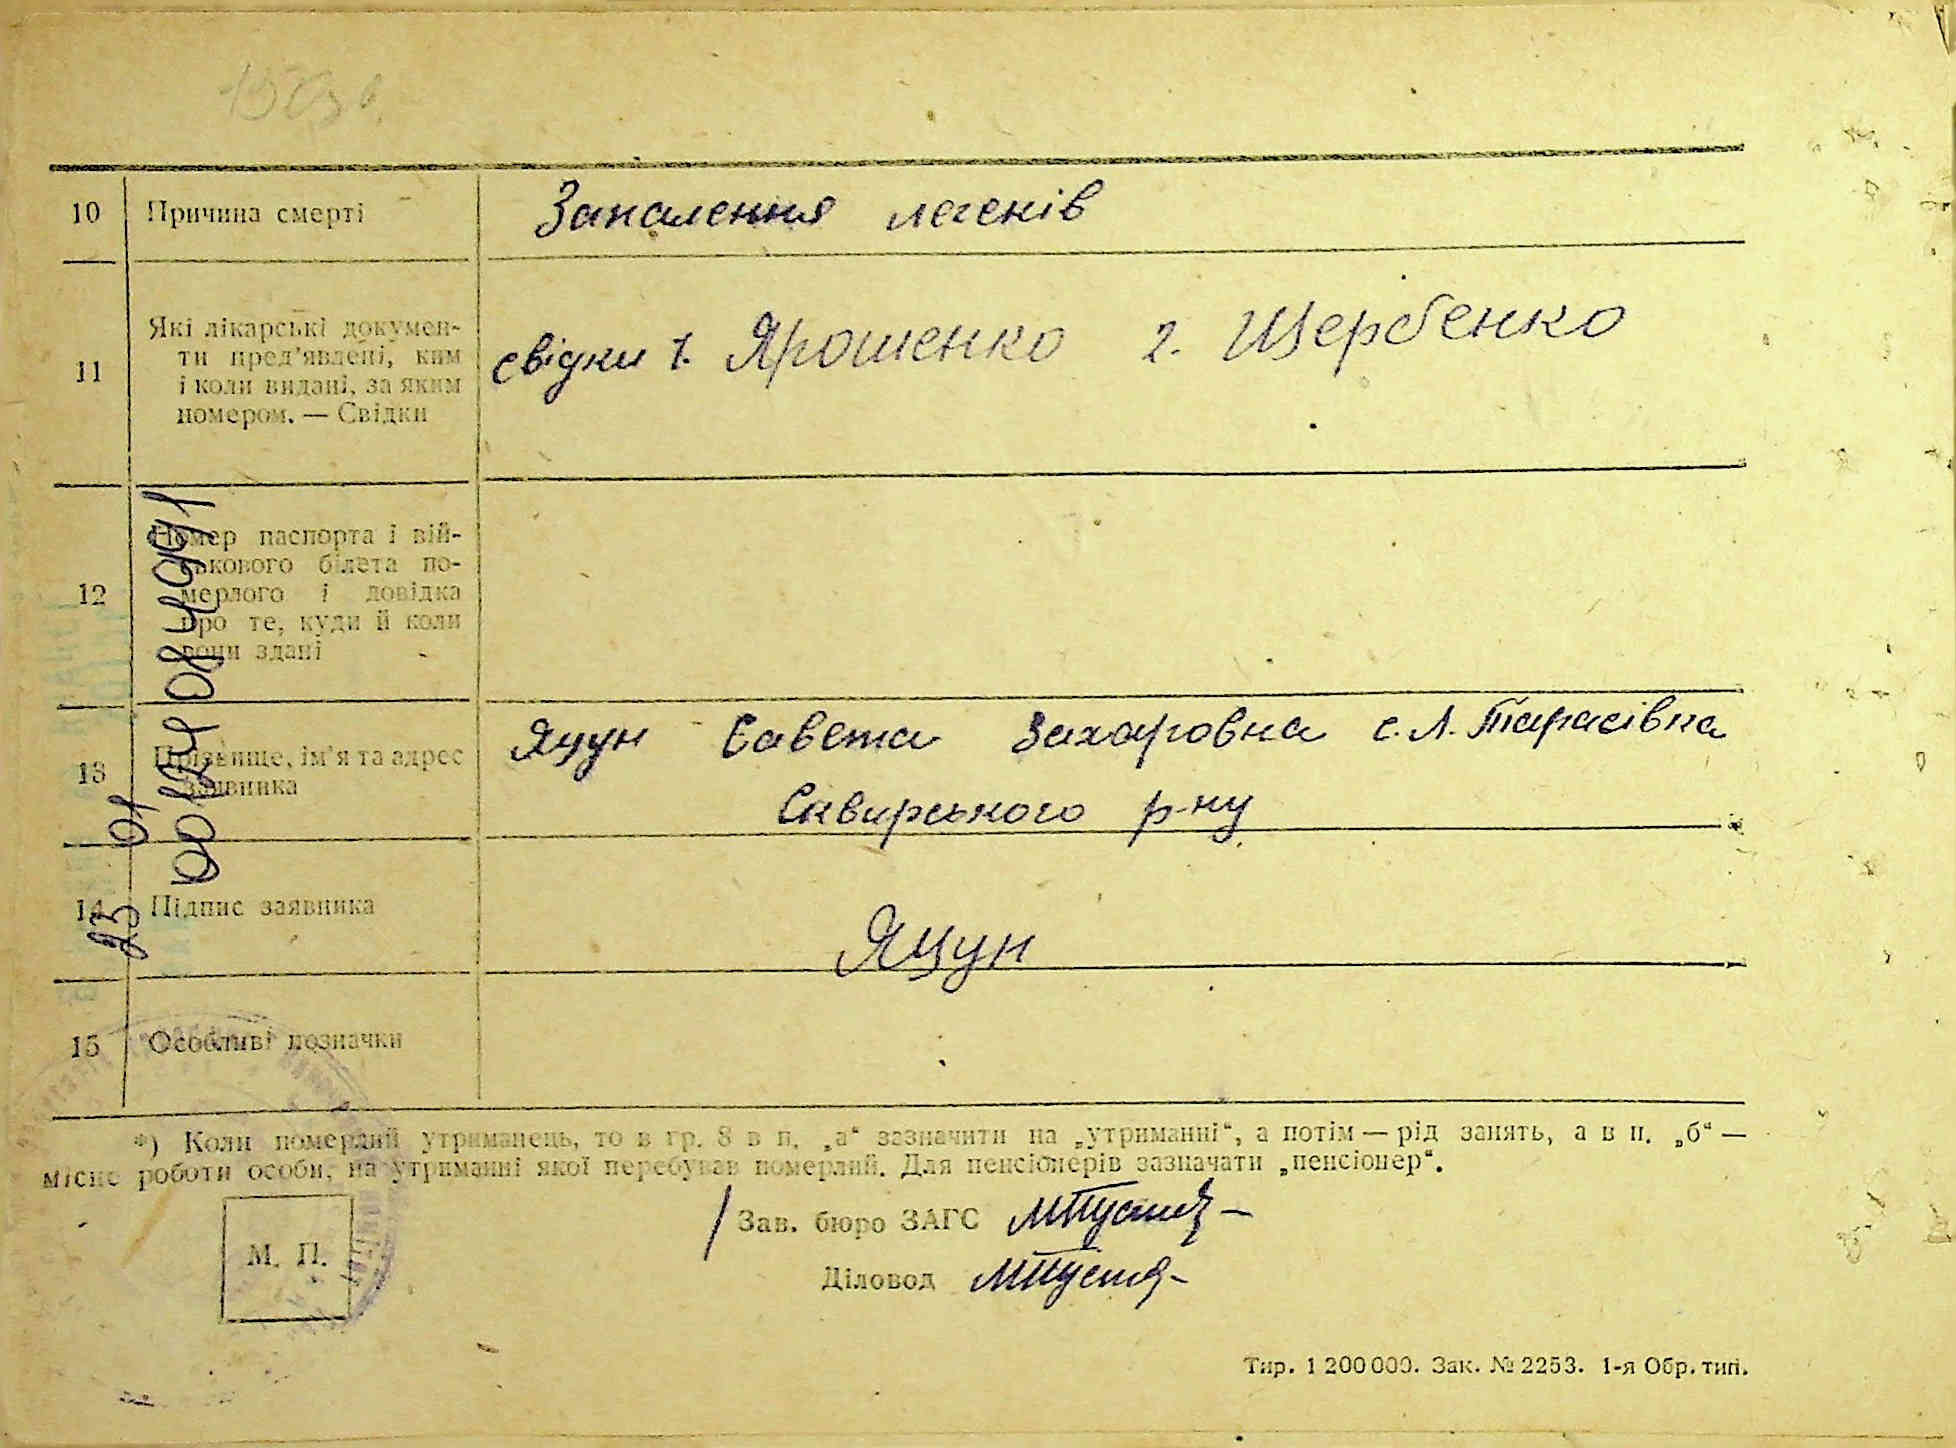 10 Причина смерті Запалення легенів
11 Які лікарські докумен-
ти пред'явлені, ким
і коли видані, за яким
номером. — Свідки
свідки 1. Ярошенко 2. Щербенко
12 Номер паспорта і вій-
ськового білета по-
мерлого і довідка
про те, куди й коли
вони здані
13 Прізвище, ім'я та адрес
заявника
Яцун Савета Захаровна с. Л. Тарасівка
Сквирського р-ну
14 Підпис заявника Яцун
15 Особливі позначки
23 01
00124 084 0991
*) Коли померлий утриманець, то в гр. 8 в п. „а“ зазначити на „утриманні“, а потім — рід занять, а в п. „б“ —
місце роботи особи, на утриманні якої перебував померлий. Для пенсіонерів зазначати „пенсіонер“.
М. П.
Зав. бюро ЗАГС
Діловод
Тир. 1 200 000. Зак. № 2253. 1-я Обр. тип.